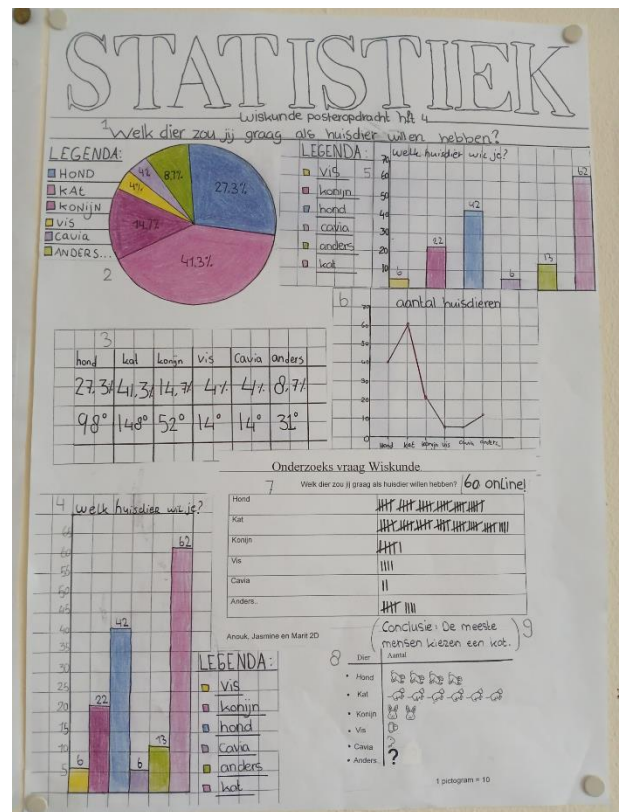 STATISTIEK
Wiskunde posteropdracht hft 4
1 Welk dier zou jij graag als huisdier willen hebben?
LEGENDA:
HOND
KAt
KONIJN
VIS
CAVIA
ANDERS...
2
27.3%
41.3%
14.7%
4%
4%
8.7%
LEGENDA:
Vis
konijn
hond
cavia
anders
kat
5
welk huisdier wil je?
70
60
50
40
30
20
10
6
22
42
6
13
62
3
hond kat konijn vis Cavia anders
27.3% 41.3% 14.7% 4% 4% 8.7%
98° 148° 52° 14° 14° 31°
6
aantal huisdieren
70
60
50
40
30
20
10
0
Hond kat konijn vis cavia anders
Onderzoeks vraag Wiskunde
7
Welk dier zou jij graag als huisdier willen hebben?
60 online!
Hond
Kat
Konijn
Vis
Cavia
Anders..
Anouk, Jasmine en Marit 2D
Conclusie: De meeste
mensen kiezen een kat.
9
4
welk huisdier wil je?
65
60
55
50
45
40
35
30
25
20
15
10
5
6
22
42
6
13
62
LEGENDA:
Vis
konijn
hond
Cavia
anders
kat
8
Dier Aantal
• Hond
• Kat
• Konijn
• Vis
• Cavia
• Anders.. ?
1 pictogram = 10